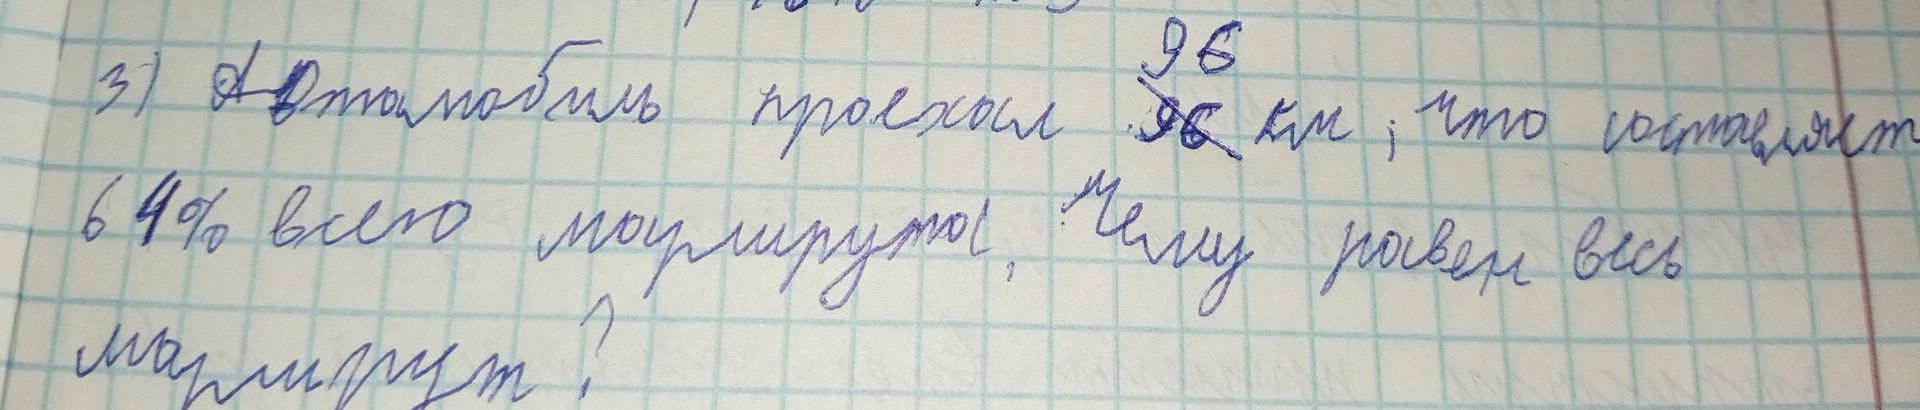 3) Автомобиль проехал 96 км, что составляет
64% всего маршрута. Чему равен весь
маршрут?